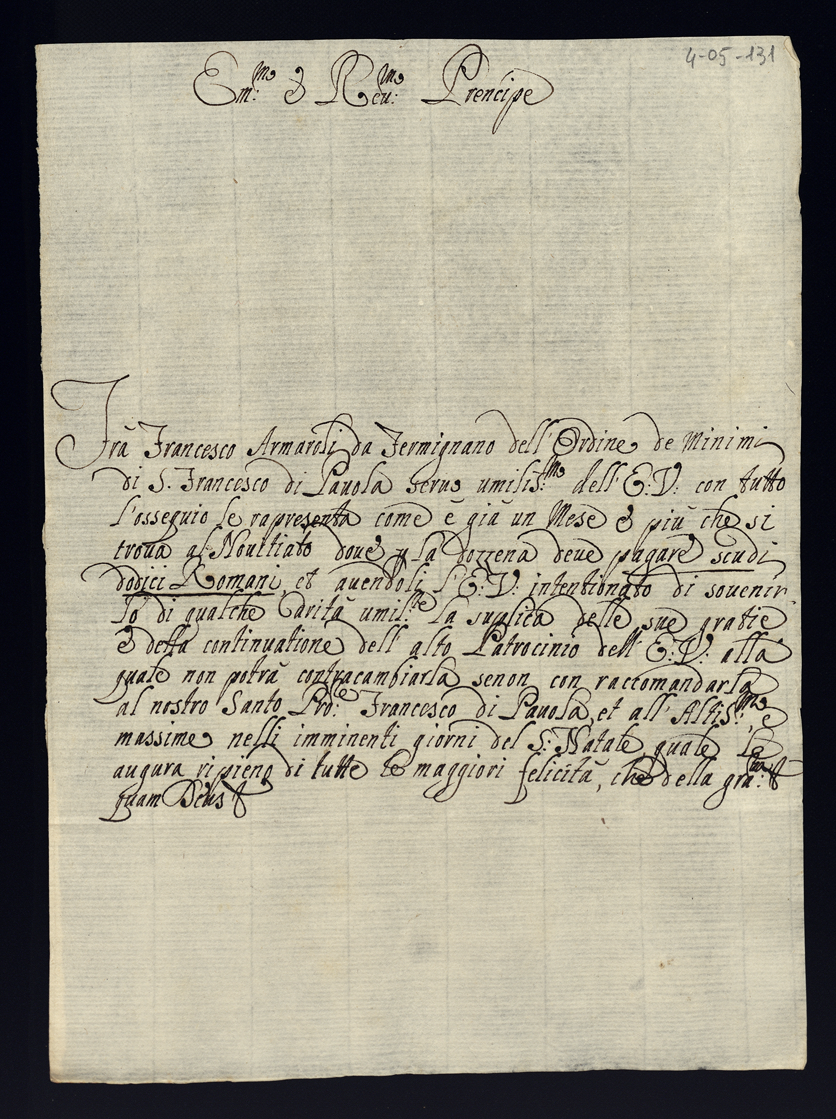 4-05-131
Em:mo e Reu:mo Prencipe
Frà Francesco Armaroli da Fermignano dell'Ordine de Minimi
di S. Francesco di Pauola seruo umilis:mo dell'E:V: con tutto
l'ossequio le rapresenta come è già un Mese e più che si
troua al Nouitiato doue p la dozzena deue pagare scudi
dodici Romani, et auendoli l'E:V: intentionato di souenir-
lo di qualche Carità umil:te la suplica delle sue gratie
e della continuatione dell'alto Patrocinio dell'E:V: alla
quale non potrà contracambiarla senon con raccomandarla
al nostro Santo Pre: Francesco di Pauola, et all'Altis:mo, e
massime nelli imminenti giorni del S: Natale, quale le
augura ripieno di tutte le maggiori felicità, che della gra:
quam Deus